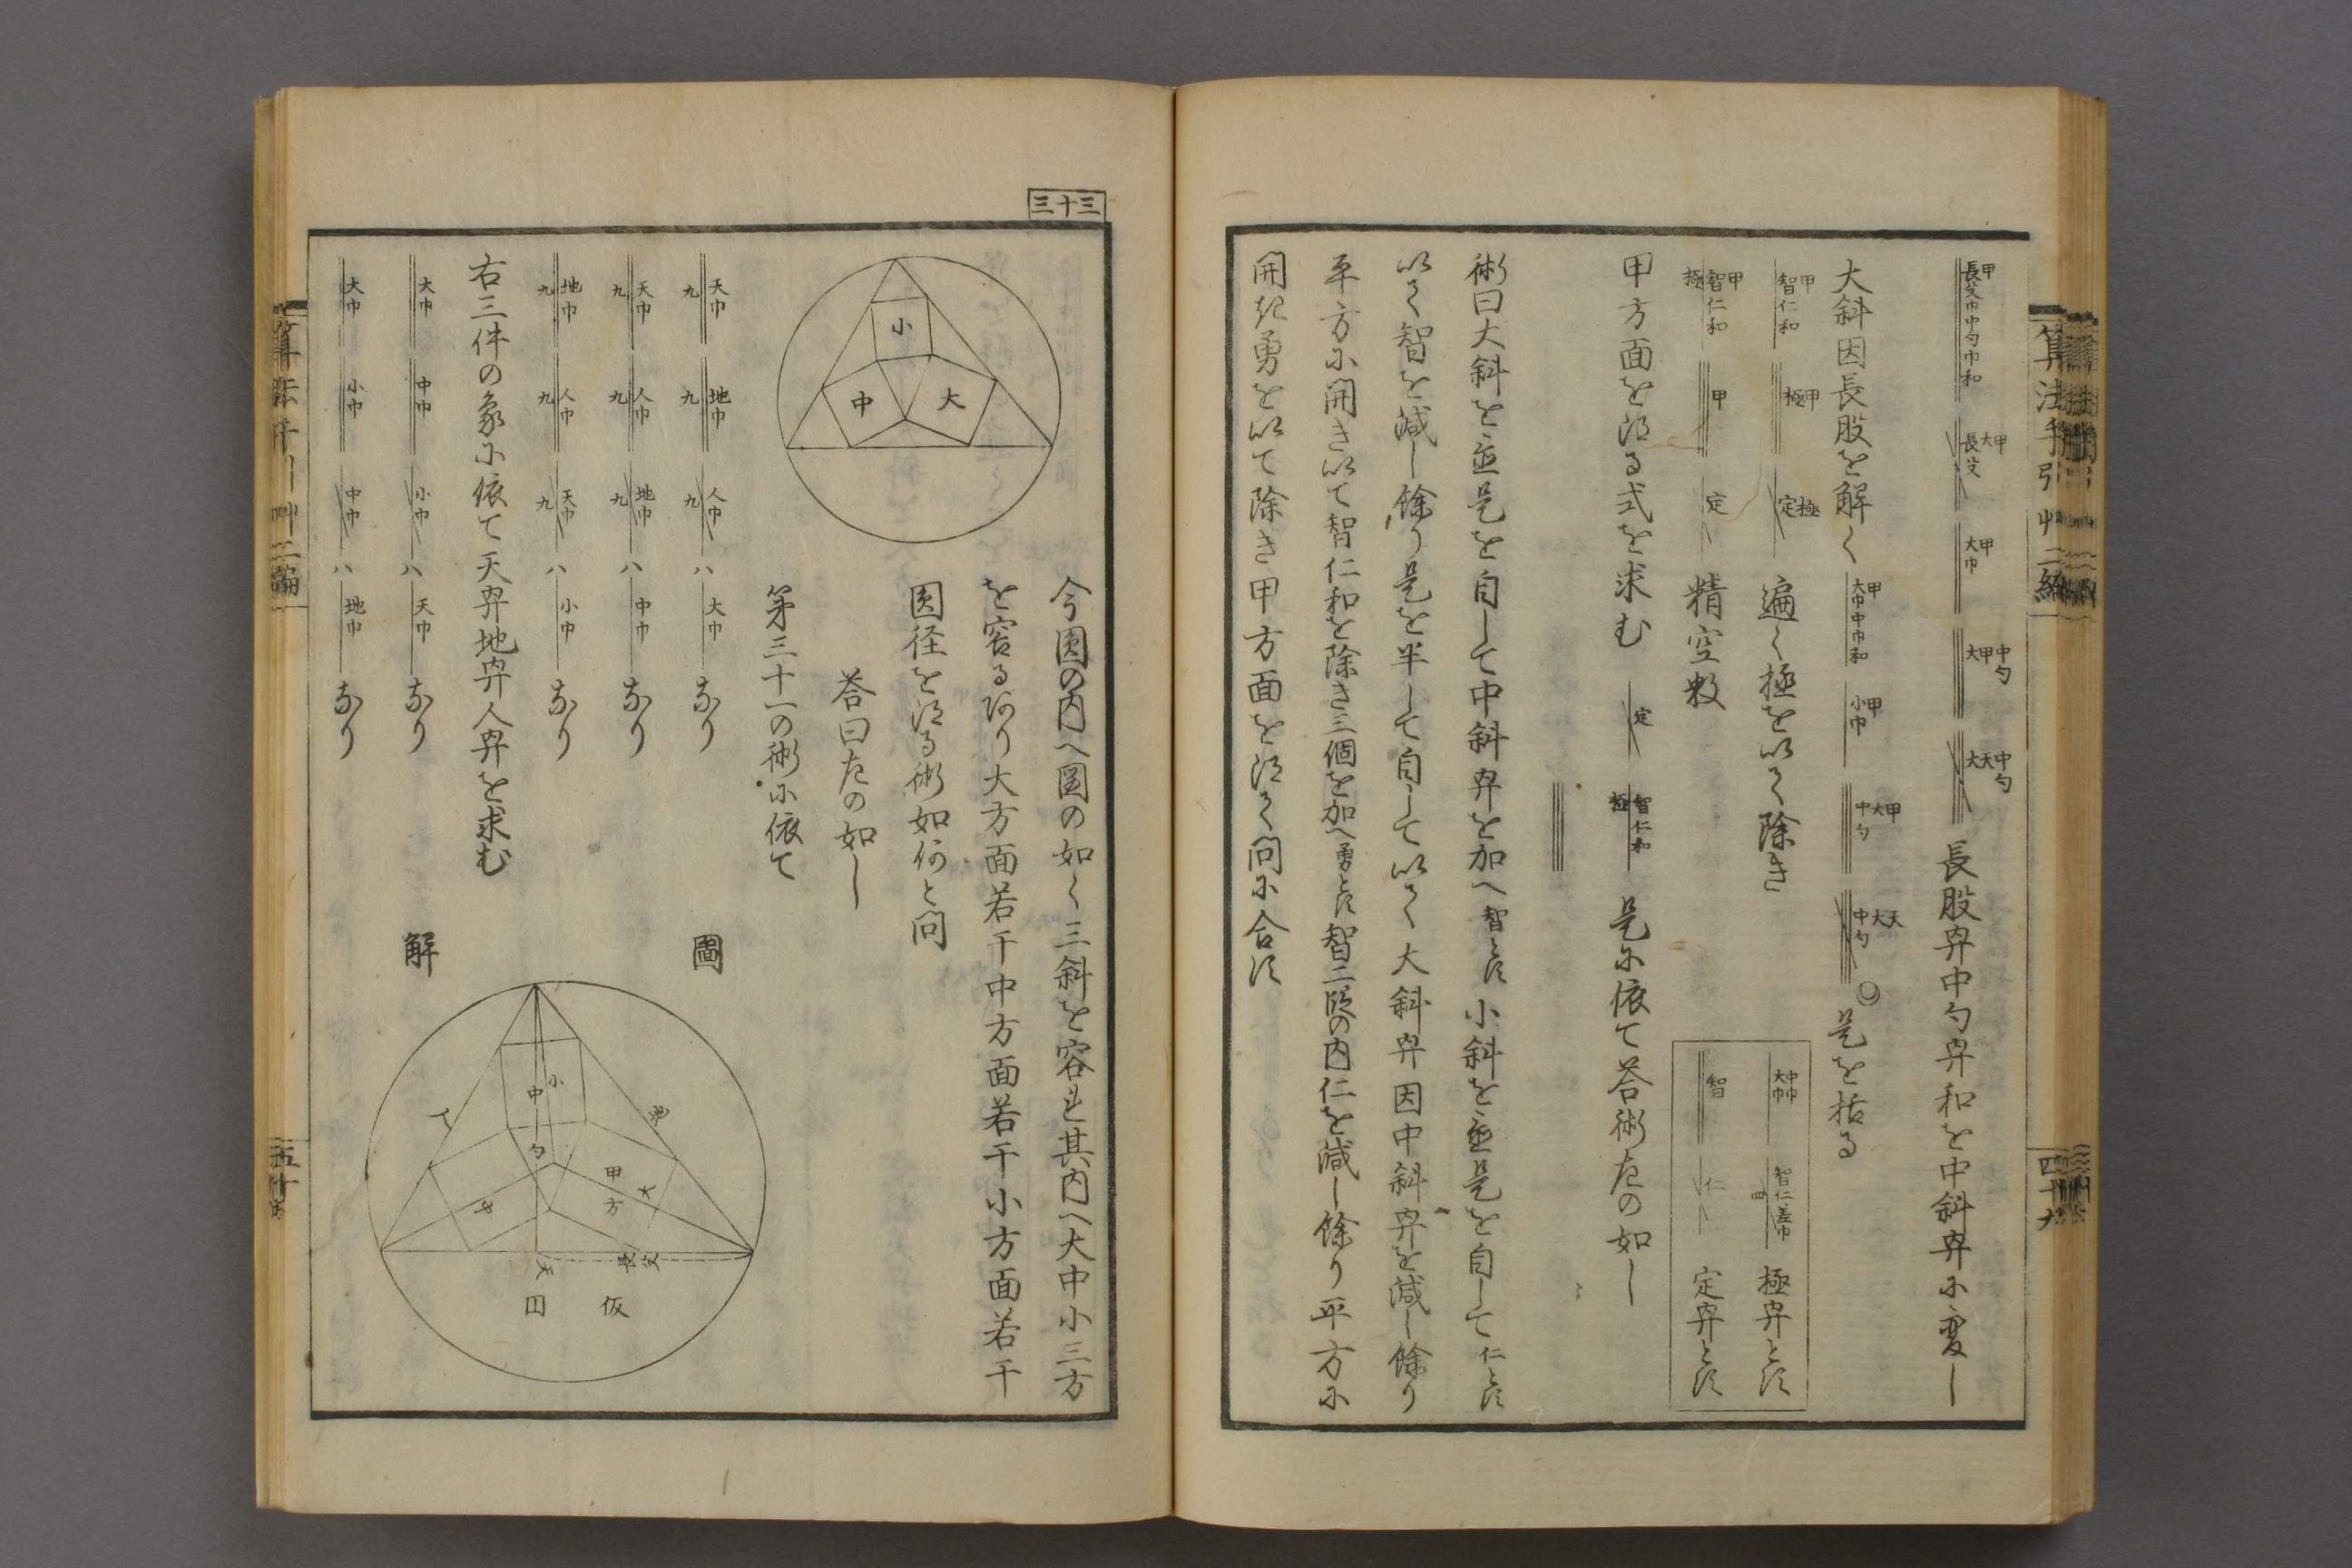 算法手引艸二編
四十九
甲長殳巾中勺巾和
甲大長殳
甲大巾
中勺甲大
中勺天大
長股冪中勺冪和を中斜冪に変し
大斜因長股を解く
甲大巾中巾和
甲小巾
甲大中勺
天大中勺
是を括る
甲智仁和
甲極
極定
遍く極を以て除き
甲智仁和
極
甲
定
精空数
中巾大巾
智仁差巾
四
極冪とす
智
仁
定冪とす
甲方面を得る式を求む
定
智仁和
極
是に依て答術左の如し
術曰大斜を自して中斜冪を加へ智とす小斜を自して仁とす
以て智を減し餘り是を半して自して以て大斜冪因中斜冪を減し餘り
平方に開き以て智仁和を除き三個を加へ勇とす智二段の内仁を減し餘り平方に
開き勇を以て除き甲方面を得て問に合す
三十三
小
中
大
今圓の内へ図の如く三斜を容れ其内へ大中小三方
を容る有り大方面若干中方面若干小方面若干
圓径を得る術如何と問
答曰左の如し
第三十一の術に依て
天巾
九
地巾
九
人巾
九
八
大巾
なり
天巾
九
人巾
九
地巾
九
八
中巾
なり
地巾
九
人巾
九
天巾
九
八
小巾
なり
右三件の象に依て天冪地冪人冪を求む
大巾
中巾
小巾
八
天巾
なり
大巾
小巾
中巾
八
地巾
なり
圖
解
小
中
勺
地
人
甲
方
大
中
長殳
天
仮
五十